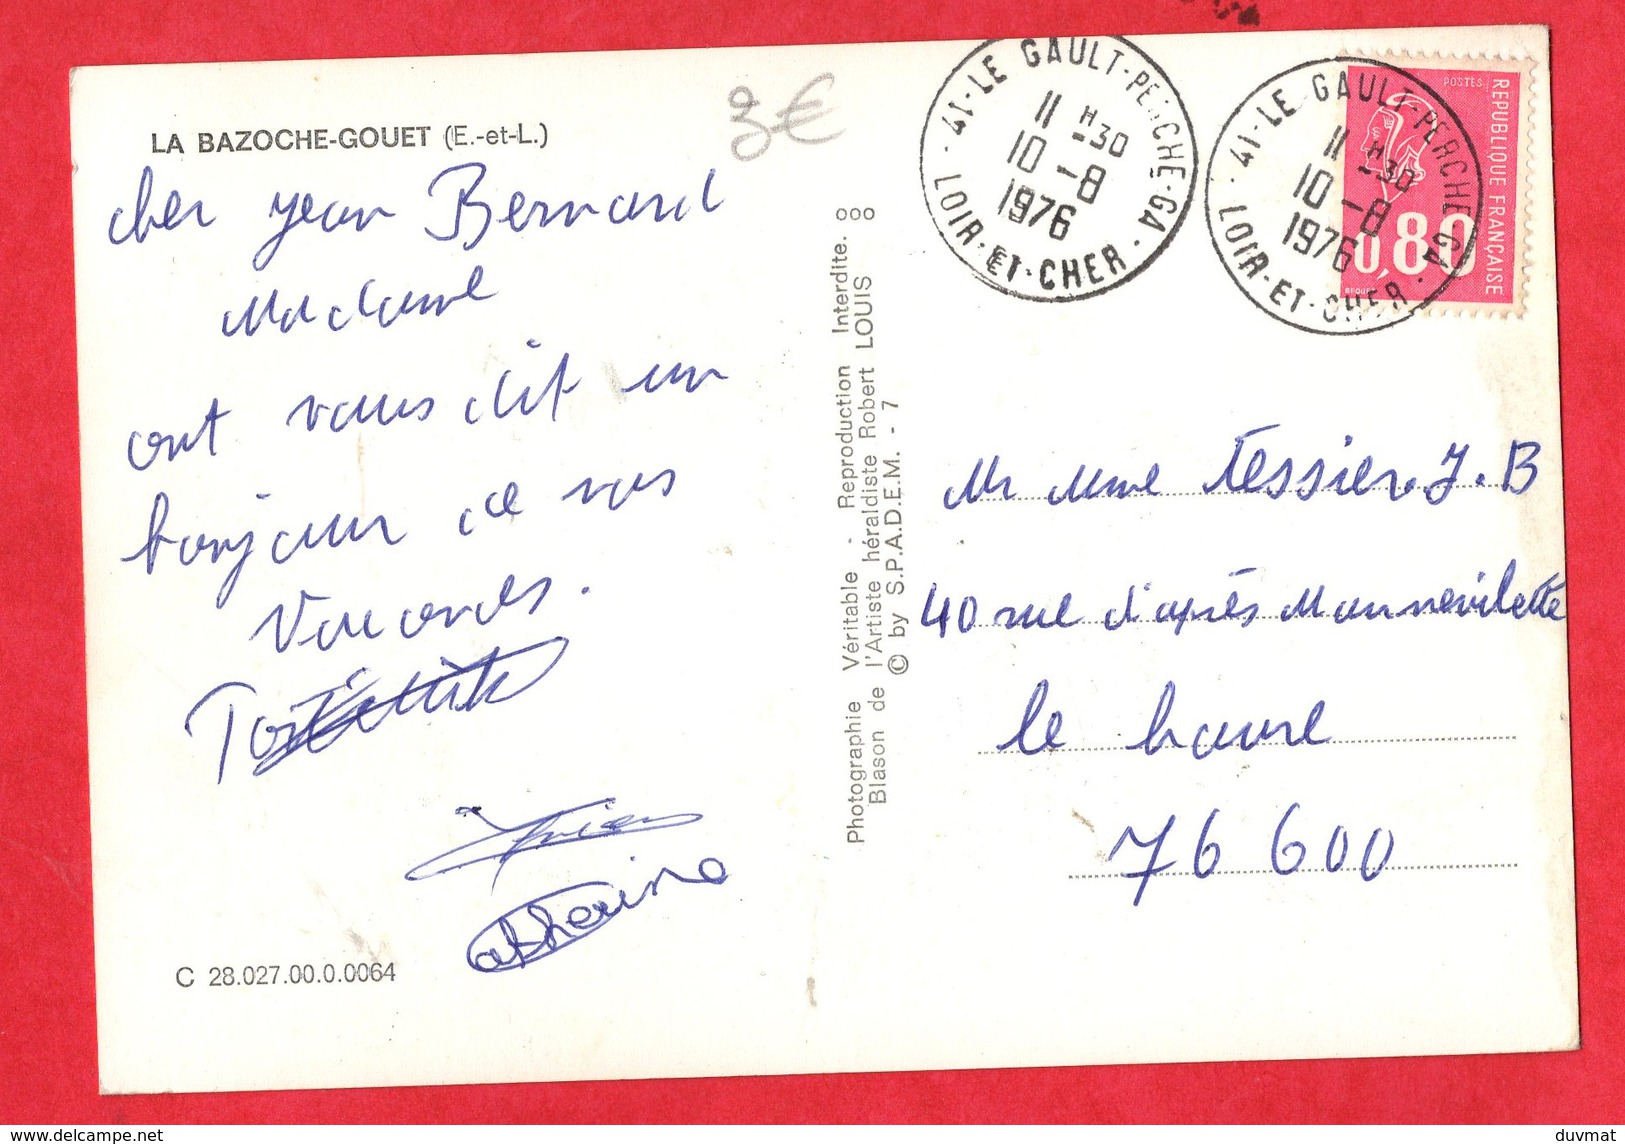 LA BAZOCHE-GOUET (E.-et-L.)
3€
cher jean Bernard
Madame
ont vous dit un
bonjour de nos
Vacances.
Catherine
C 28.027.00.0.0064
Photographie Véritable - Reproduction Interdite.
Blason de l'Artiste héraldiste Robert LOUIS
© by S.P.A.D.E.M. - 7
41-LE GAULT-PERCHE-GA
11 H -30
10 -8
1976
LOIR-ET-CHER
41-LE GAULT-PERCHE-GA
11 H -30
10 -8
1976
LOIR-ET-CHER
POSTES
REPUBLIQUE FRANÇAISE
0,80
BEQUET
Mr Mme Tessier. J. B
40 rue d'après Mannevilette
le havre
76 600
duvmat